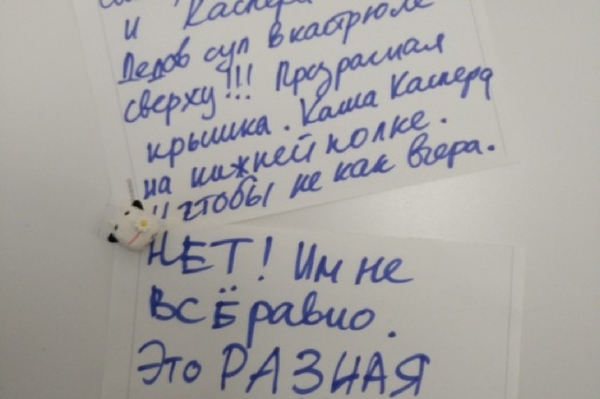 и Каспера
Дедов суп в кастрюле
сверху!!! Прозрасная
крышка. Каша Каспера
на нижней полке.
И чтобы не как вчера.
НЕТ! Им не
ВСЁ равно.
Это РАЗНАЯ